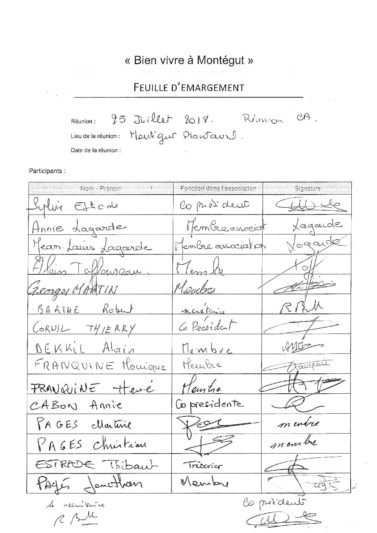 « Bien vivre à Montégut »
FEUILLE D'EMARGEMENT
Réunion : 25 Juillet 2018. Réunion CA
Lieu de la réunion : Montégut Plantaurel
Date de la réunion :
Participants :
Nom - Prénom Fonction dans l'association Signature
Sylvie Co président
Annie Lagarde Membre associat Lagarde
Jean Louis Lagarde Membre association Lagarde
Alain Membre
Georges MARTIN Membre
BARTHE Robert secrétaire
CORVIL THIERRY Co Président
DEKKIL Alain Membre
FRANQUINE Monique Membre
FRANQUINE Hervé Membre
CABON Annie Co presidente
PAGES Martine membre
PAGES Christian membre
ESTRADE Thibaut Trésorier
Pagès Jonathan Membre
le secrétaire Co président